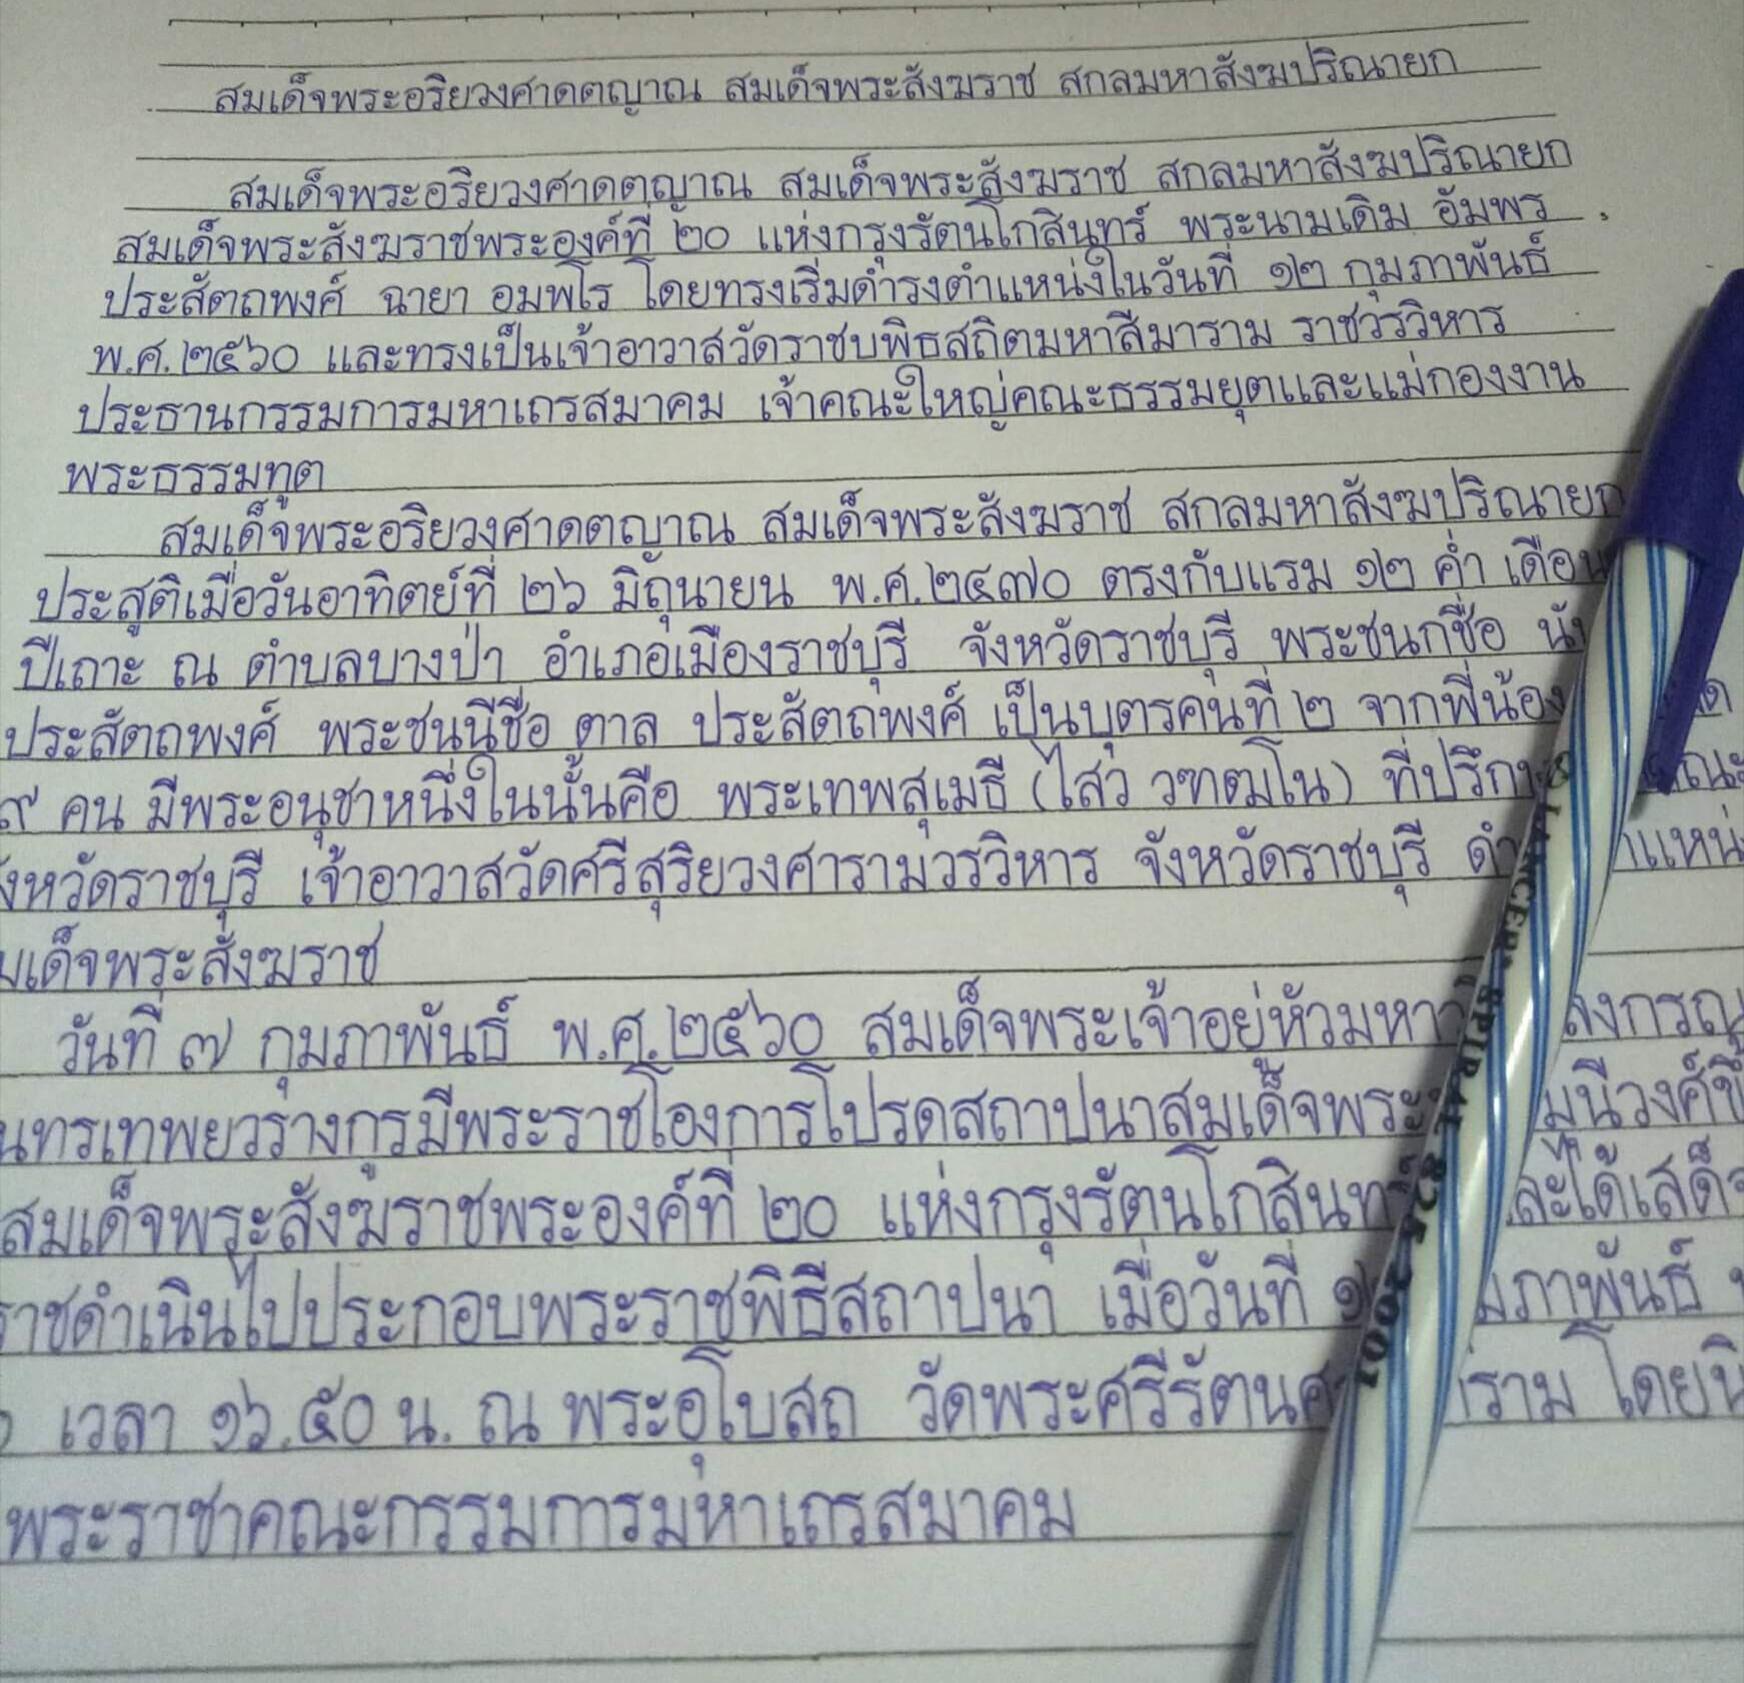 สมเด็จพระอริยวงศาคตญาณ สมเด็จพระสังฆราช สกลมหาสังฆปริณายก
สมเด็จพระอริยวงศาคตญาณ สมเด็จพระสังฆราช สกลมหาสังฆปริณายก
สมเด็จพระสังฆราชพระองค์ที่ ๒๐ แห่งกรุงรัตนโกสินทร์ พระนามเดิม อัมพร
ประสัตถพงศ์ ฉายา อมพโร โดยทรงเริ่มดำรงตำแหน่งในวันที่ ๑๒ กุมภาพันธ์
พ.ศ.๒๕๖๐ และทรงเป็นเจ้าอาวาสวัดราชบพิธสถิตมหาสีมาราม ราชวรวิหาร
ประธานกรรมการมหาเถรสมาคม เจ้าคณะใหญ่คณะธรรมยุตและแม่กองงาน
พระธรรมทูต
สมเด็จพระอริยวงศาคตญาณ สมเด็จพระสังฆราช สกลมหาสังฆปริณายก
ประสูติเมื่อวันอาทิตย์ที่ ๒๖ มิถุนายน พ.ศ.๒๔๗๐ ตรงกับแรม ๑๒ ค่ำ เดือน
ปีเถาะ ณ ตำบลบางป่า อำเภอเมืองราชบุรี จังหวัดราชบุรี พระชนกชื่อ
ประสัตถพงศ์ พระชนนีชื่อ ตาล ประสัตถพงศ์ เป็นบุตรคนที่ ๒ จากพี่น้อง
๙ คน มีพระอนุชาหนึ่งในนั้นคือ พระเทพสุเมธี (ไสว วฑฒโน)
จังหวัดราชบุรี เจ้าอาวาสวัดศรีสุริยวงศารามวรวิหาร จังหวัดราชบุรี
มเด็จพระสังฆราช
วันที่ ๗ กุมภาพันธ์ พ.ศ.๒๕๖๐ สมเด็จพระเจ้าอยู่หัวมหา ลงกรณ
นทรเทพยวรางกูรมีพระราชโองการโปรดสถาปนาสมเด็จพระ มุนีวงศ์ขึ้
สมเด็จพระสังฆราชพระองค์ที่ ๒๐ แห่งกรุงรัตนโกสินทร์ และได้เสด็จ
ราชดำเนินไปประกอบพระราชพิธีสถาปนา เมื่อวันที่ มภาพันธ์
เวลา ๑๖.๕๐ น. ณ พระอุโบสถ วัดพระศรีรัตนศ าราม โดยมี
พระราชาคณะกรรมการมหาเถรสมาคม
LANCER SPIRAL 825